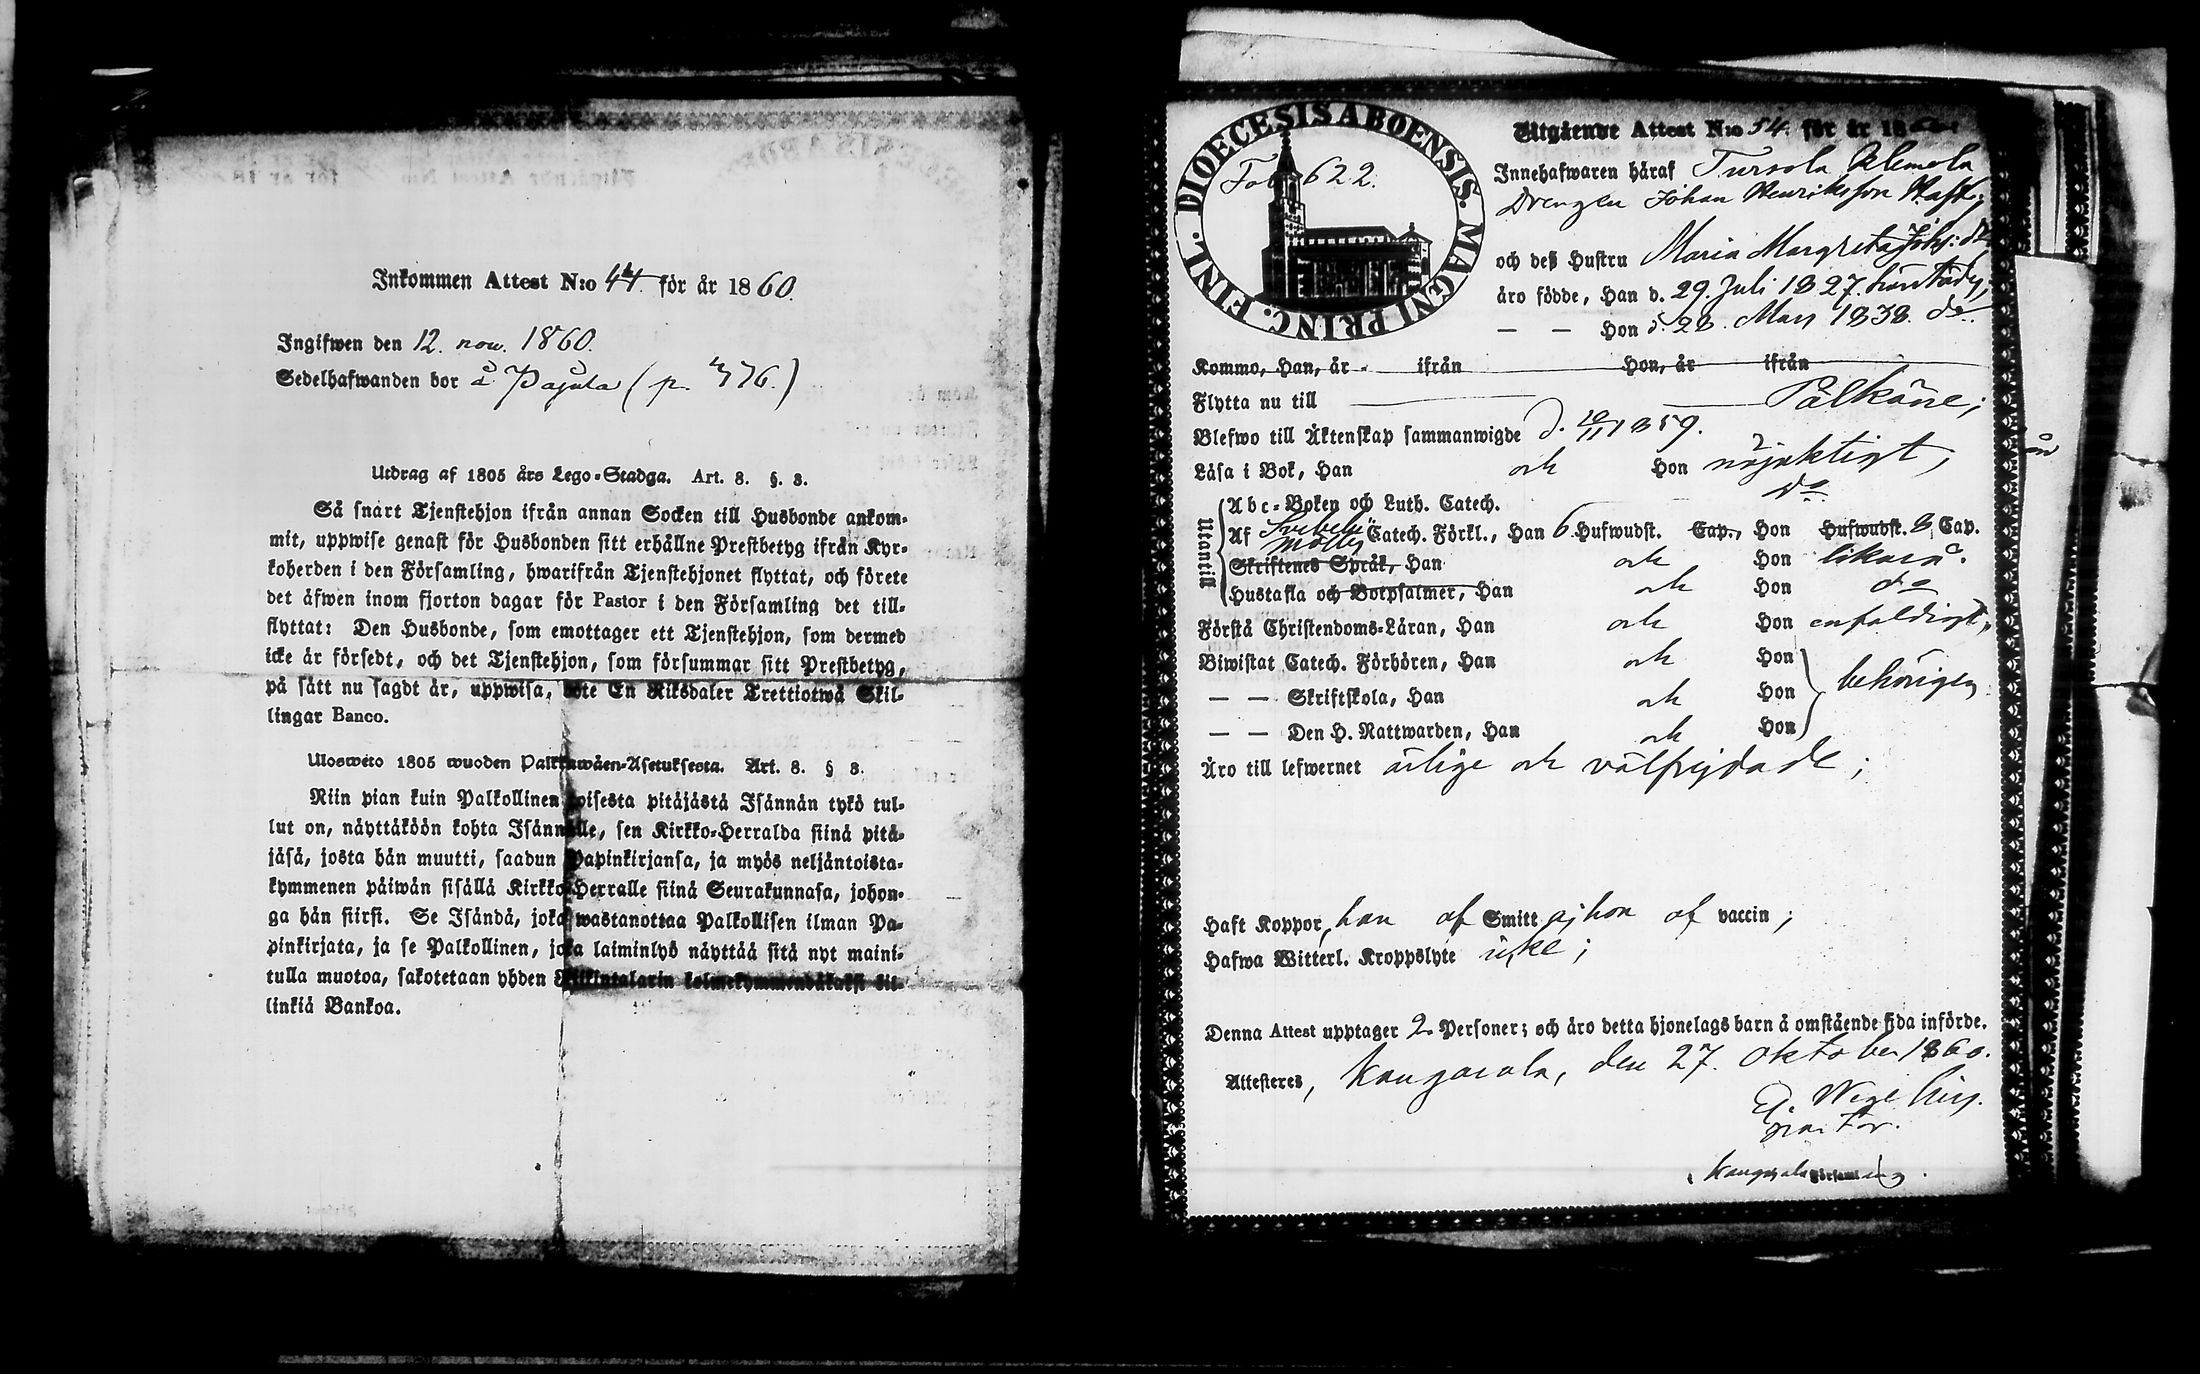 Inkommen Attest N:o 44. för år 1860.
Ingifwen den 12. nov. 1860.
Sedelhafwanden bor å Pajula (p. 376.)
Utdrag af 1805 års Lego-Stadga. Art. 8. §. 3.
Så snart Tjenstehjon ifrån annan Socken till Husbonde ankom-
mit, uppwise genast för Husbonden sitt erhållne Prestbetyg ifrån Kyr-
koherden i den Församling, hwarifrån Tjenstehjonet flyttat, och förete
det äfwen inom fjorton dagar för Pastor i den Församling det till-
flyttat: Den Husbonde, som emottager ett Tjenstehjon, som dermed
icke är försedt, och det Tjenstehjon, som försummar sitt Prestbetyg,
på sätt nu sagdt är, uppwisa, böte En Riksdaler Trettiotwå Skil-
lingar Banco.
Ulosweto 1805 wuoden Palkkawäen-Asetuksesta. Art. 8. § 3.
Niin pian kuin Palkollinen toisesta pitäjästä Isännän tykö tul-
lut on, näyttäköön kohta Isännälle, sen Kirkko-Herralda siinä pitä-
jäsä, josta hän muutti, saadun Papinkirjansa, ja myös neljäntoista-
kymmenen päiwän sisällä Kirkko-Herralle siinä Seurakunnasa, johon-
ga hän siirsi. Se Isändä, joka wastanottaa Palkollisen ilman Pa-
pinkirjata, ja se Palkollinen, joka laiminlyö näyttää sitä nyt maini-
tulla muotoa, sakotetaan yhden Riikintalarin kolmekymmendäkaksi kil-
linkiä Bankoa.
DIOECESIS ABOENSIS. MAGNI PRINC. FINL.
Fol 622.
Utgående Attest N:o 54. för år 1860
Innehafwaren häraf Tursola Klemola
Drengen Johan Henriksson
och deß Hustru Maria Margreta Johs: dr
äro födde, Han d. 29. Juli 1827.
— — Hon d. 28. Mars 1838. do
Kommo, Han, år ifrån Hon, år ifrån
Flytta nu till Pälkäne;
Blefwo till Äktenskap sammanwigde d. 10/11 1859.
Läsa i Bok, Han och Hon nöjaktigt,
Utantill
Abc-Boken och Luth. Catech. do
Af Svebelii Catech. Förkl., Han 6 Hufwudst. Cap., Hon Hufwudst. 3 Cap.
Skriftenes Språk, Han och Hon likaså.
Hustafla och Botpsalmer, Han och Hon do
Förstå Christendoms-Läran, Han och Hon enfaldigt,
Biwistat Catech. Förhören, Han och Hon
— — Skriftskola, Han och Hon behörigen
— — Den H. Nattwarden, Han och Hon
Äro till lefwernet ärlige och välfrejdade;
Haft Koppor, han af Smitt hon af vaccin;
Hafwa Witterl. Kroppslyte icke;
Denna Attest upptager 2 Personer; och äro detta hjonelags barn å omstående sida införde.
Attesteres, Kangasala, den 27. Oktober 1860.
Wegelius.
Kangasala Församling.